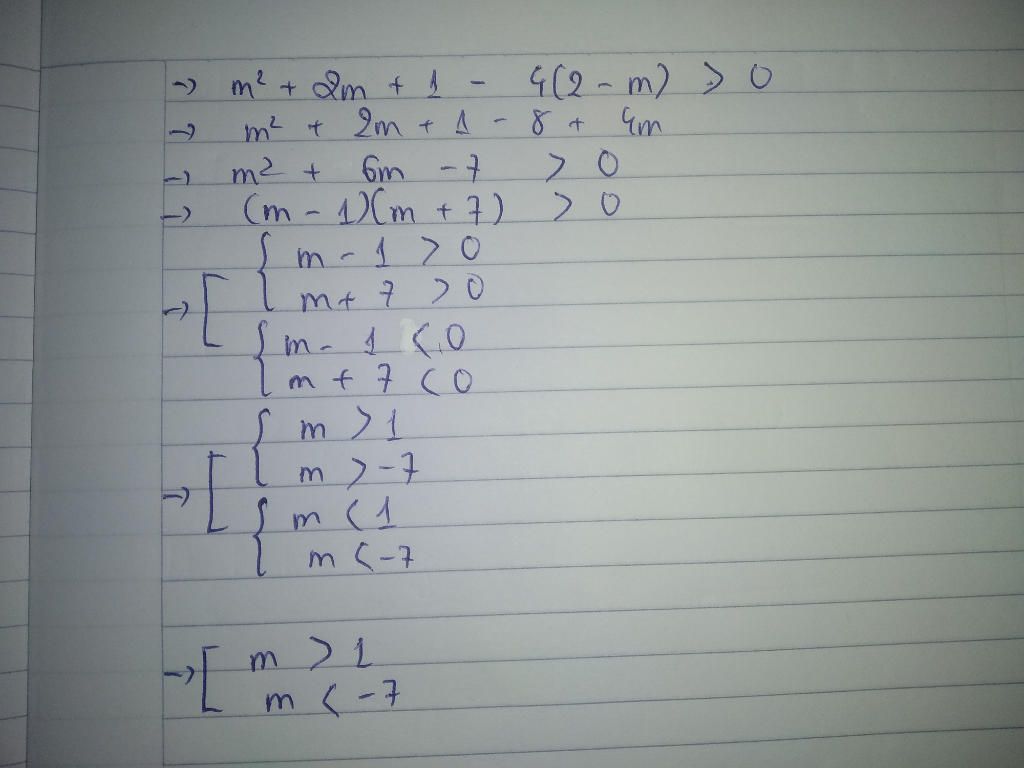 → m² + 2m + 1 - 4(2 - m) > 0
→ m² + 2m + 1 - 8 + 4m
→ m² + 6m - 7 > 0
→ (m - 1)(m + 7) > 0
{ m - 1 > 0
→ [ m + 7 > 0
{ m - 1 < 0
m + 7 < 0
{ m > 1
m > -7
→ [ { m < 1
m < -7
→ [ m > 1
m < -7